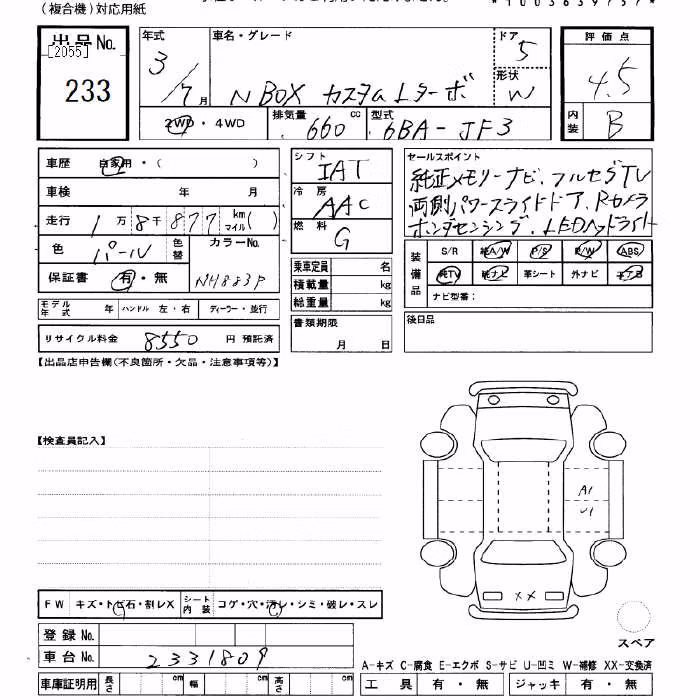 (複合機)対応用紙
出品No.
[2055]
233
年式 3/7月
車名・グレード N BOX カスタム Lターボ
ドア 5
形状 W
評価点 4.5
内装 B
2WD・4WD
排気量 660 cc
型式 6BA-JF3
車歴 自家用・( )
車検 年 月
走行 1万8千877 km マイル( )
色 パール 色替
カラーNo. NH883P
保証書 有・無
モデル年式 年 ハンドル 左・右 ディーラー・並行
リサイクル料金 8550 円 預託済
シフト IAT
冷房 AAC
燃料 G
乗車定員 名
積載量 kg
総重量 kg
書類期限 月 日
セールスポイント
純正メモリーナビ、フルセグTV
両側パワースライドドア、Rカメラ
ホンダセンシング、LEDヘッドライト
装備品 S/R 純A/W P/S P/W ABS
純TV 純ナビ 革シート 外ナビ エアB
ナビ型番:
後日品
【出品店申告欄(不良箇所・欠品・注意事項等)】
【検査員記入】
A1
U1
XX
スペア
FW キズ・トビ石・割レX シート内装 コゲ・穴・汚レ・シミ・破レ・スレ
登録No.
車台No. 2331809
車庫証明用 長さ cm 幅 cm 高さ cm
A-キズ C-腐食 E-エクボ S-サビ U-凹ミ W-補修 XX-交換済
工具 有・無 ジャッキ 有・無